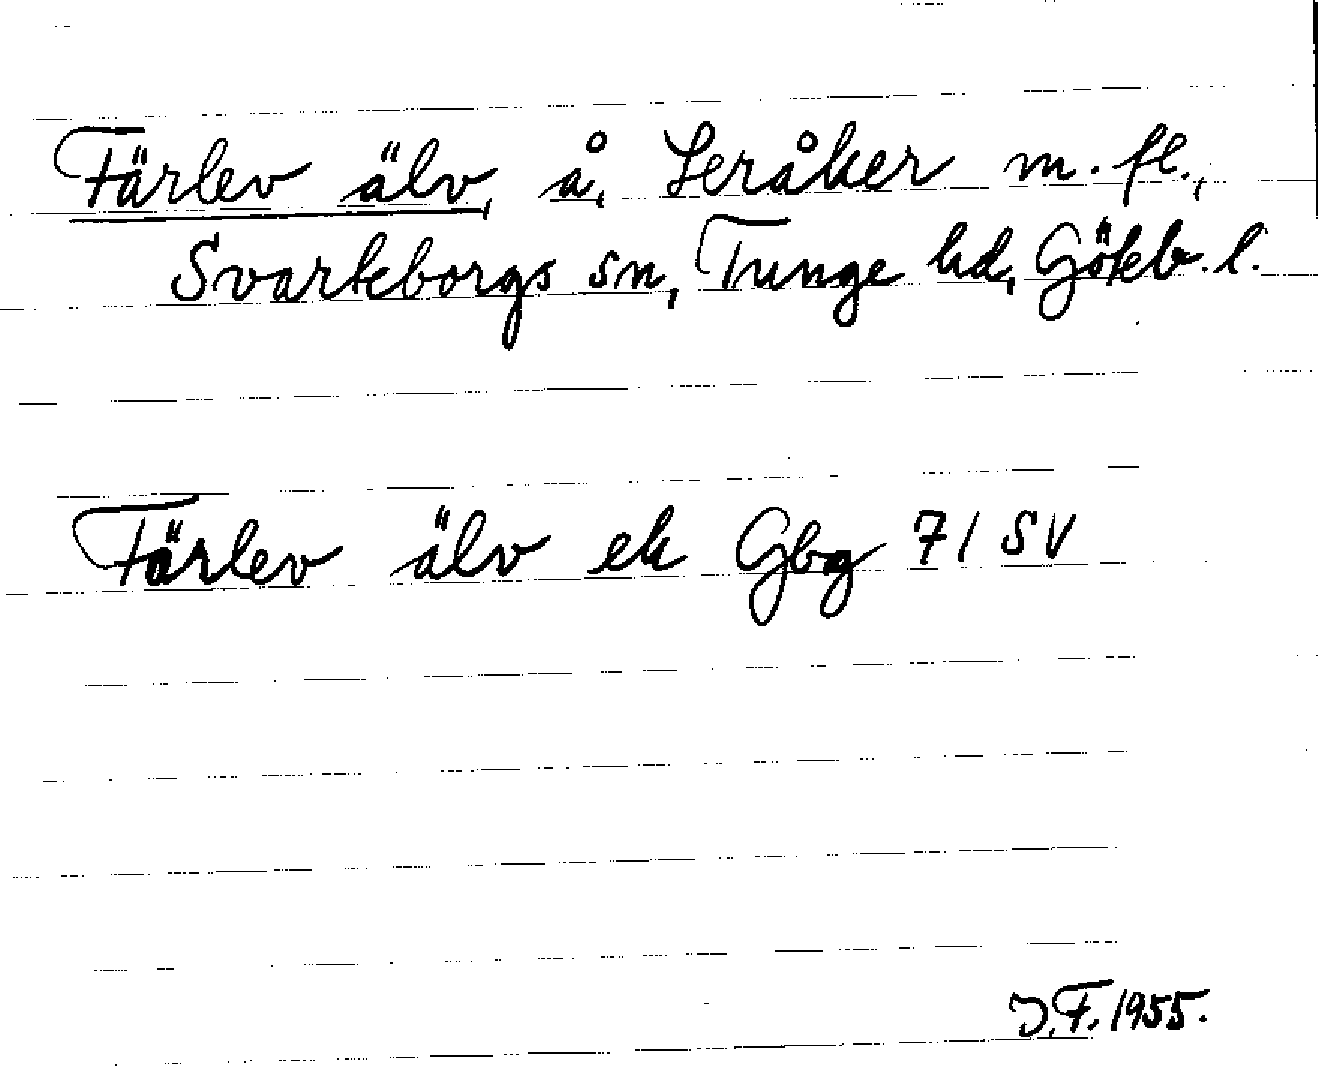 Färlev älv, å, Leråker m. fl.,
Svarteborgs sn, Tunge hd, Göteb. l.
Färlev älv ek Gbg 71 SV
J.F. 1955.